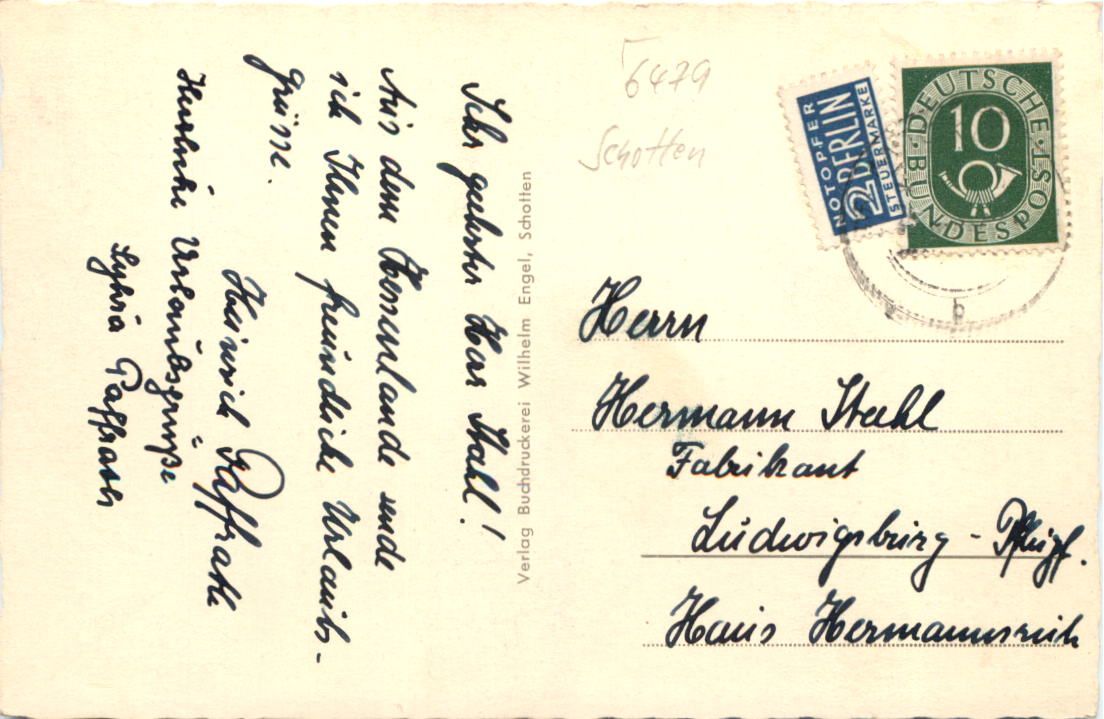 Sehr geehrter Herr Stahl!
Aus dem Hessenlande sende
ich Ihnen freundliche Urlaubs-
grüsse.
Heinrich Paffrath
Herzliche Urlaubsgrüße
Sylvia Paffrath
Verlag Buchdruckerei Wilhelm Engel, Schotten
6479
Schotten
NOTOPFER
2 BERLIN
STEUERMARKE
DEUTSCHE
10
BUNDESPOST
b
Herrn
Hermann Stahl
Fabrikant
Ludwigsburg - Pflugf.
Haus Hermannsruh